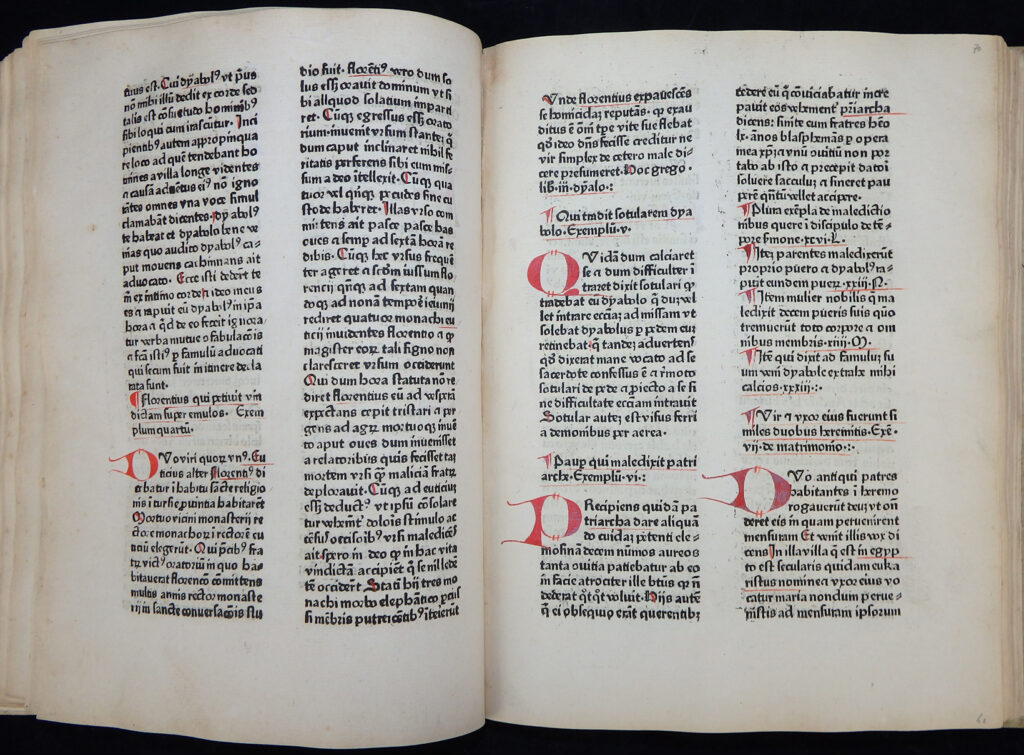 tuus est. Cui dyabolꝰ vt pus
nō mihi illū dedit ex corde sed
talis est cōsuetudo hominibꝰ
sibi loqui cum irascūtur. Inci
pientibꝰ autem appropinqua
re loco ad quē tendebant ho
mines a villa longe videntes
a causā aduētus eiꝰ nō igno
rātes omnes vna voce simul
clamabāt dicentes. Dyabolꝰ
te habeat et dyabolo bene ve
nias quo audito dyabolꝰ ca-
put mouens cachinnans ait
aduocato. Ecce isti dederūt te
m̄ ex intimo cordis ideo meus
es
hora a qd̄ de eo fecerit ignora
tur verba mutue ꝯfabulacōis
a fcā isti ꝑ famulū aduocati
qui secum fuit in itinere decla
rata sunt.
¶ Florentius qui petiuit vin
dictam super emulos. Exem
plum quartū.
DVo viri quorꝫ vnꝰ. Eu
ticius alter florentiꝰ di
cebatur ī habitu sācte religio
nis ī turſie ꝓuintia habitarēt
Mortuo vicini monasterij re
ctore monachorū ī rectorē eu
ticiū elegerūt. Qui pcibꝰ fra
trꝫ victꝰ oratoriū in quo ha-
bitauerat florenco cōmittens
multis annis rectorꝫ monaste
rij in sancte conuersacōnis stu
dio fuit. florentiꝰ vero dum so
lus essꝫ orauit dominum vt si
bi aliquod solatium imparti
ret. Cūqꝫ egressus essꝫ orato
rium inuenit vrsum stantē qͥ
dum caput inclinaret nihil fe
ritatis perferens sibi eum mis-
sum a deo ītellexit. Cūqꝫ qua
tuor vel qnqꝫ pecudes sine cu
stode haberet. Illas vrso com
mittens ait pasce pasce has
oues a semp ad sextam hora re
dibis. Cūqꝫ hec vrsus frequē
ter ageret a scdm iussum flo
rencij qnqꝫ ad sextam quan
doqꝫ ad nonā tempore ieiunij
rediret quatuor monachi eu
ticij inuidentes florentio a qͥ
magister eorꝫ tali signo non
claresceret vrsum occiderunt
Qui dum hora statuta nō re
diret florentius eū ad vsprā
expectans cepit tristari a per
gens ad agrꝫ mortuoqꝫ inuē
to aput oues dum inuenisset
a relatoribus quis fecisset taꝫ
mortem vrsi qͥ maliciā fratrꝫ
deplorauit. Cūqꝫ ad euticiuꝫ
essꝫ deductꝰ vt ipsū cōsolare
tur vehemēt dolois stimulo ac
cēsuꝰ occisoibꝰ vrsi maledices
ait spero in deo qͥ in hac vita
vindictā accipient qͥ se nil ledē
tē occiderūt. Statī hij tres mo
nachi morbo elephātico ꝑcusi
sī mēbris putrescētibꝰ īterierūt
Vnde florentius expauescens
se homicidaꝫ reputās. qͥ exau
ditus ē om̄ tpe vite sue flebat
qꝫ ideo dns̄ fecisse creditur ne
vir simplex de cetero male di-
cere presumeret. Hoc grego.
lib. iii. dyalo.:
¶ Qui tradit sotularem dya
bolo. Exemplū. v.
QVidā dum calciaret
se a dum difficulter ī
traret dixit sotulari qͥ
tradebat eū dyabolo qͥ dū vel
let intrare ecciaꝫ ad missam vt
solebat dyabolus ꝑ pedem eūꝫ
retinebat. qͥ tandeꝫ aduertens
qꝫ dixerat mane vocato ad se
sacerdote confessus ē a rēmoto
sotulari de pede a ꝓiecto a se si
ne difficultate ecciam intrauit
Sotular auteꝫ est visus ferri
a demonibus per aerea.
¶ Pauꝑ qui maledixit patri
arche. Exemplū. vi.:
PRecipiens quidā pa
triarcha dare aliquā
do cuidā petenti ele-
mosinā decem nūmos aureos
tanta ouitia patiebatur ab eo
in facie atrociter ille btūs qͥ nō
dederat qͥtqͥt voluit. Hijs autē
qͥ ei obsequio erāt querentibꝫ
cedere eū qͥ cōuiciabatur incre
pauit eos vehement priarcha
dicens: sinite eum fratres heo
lx. ānos blasphemās ꝑ opera
mea xp̄m a vnū ouitiū non por
tabo ab isto a precepit datoī
soluere sacculuꝫ a sineret pauꝑ
rē qͥntū vellet accipere.
¶ Plura exēpla de maledictio
nibus quere ī discipulo de tē-
pore smone. xcvi. L.
¶ Iteꝫ parentes maledixerūt
proprio puero a dyabolꝰ ra-
puit eundem puerꝫ. xxiii. P.
¶ Item mulier nobilis qͥ ma
ledixit decem pueris suis quo
tremuerūt toto corpore a om
nibus membris. xiiii. M.
¶ Itē qui dixit ad famuluꝫ su
um veni dyabole extrahe mihi
calcios. xxxiii.:
¶ Vir a vxor eius fuerunt si
miles duobus heremitis. Exē.
vij. de matrimonio.:
DVo antiqui patres
habitantes ī heremo
rogauerūt deuꝫ vt on
deret eis in quam peruenirent
mensuram Et venit illis vox di
cens In illa villa qͥ est in egyp
to est secularis quidam euka
ristus nomine a vxor eius vo
catur maria nondum perue-
nistis ad mensuram ipsorum